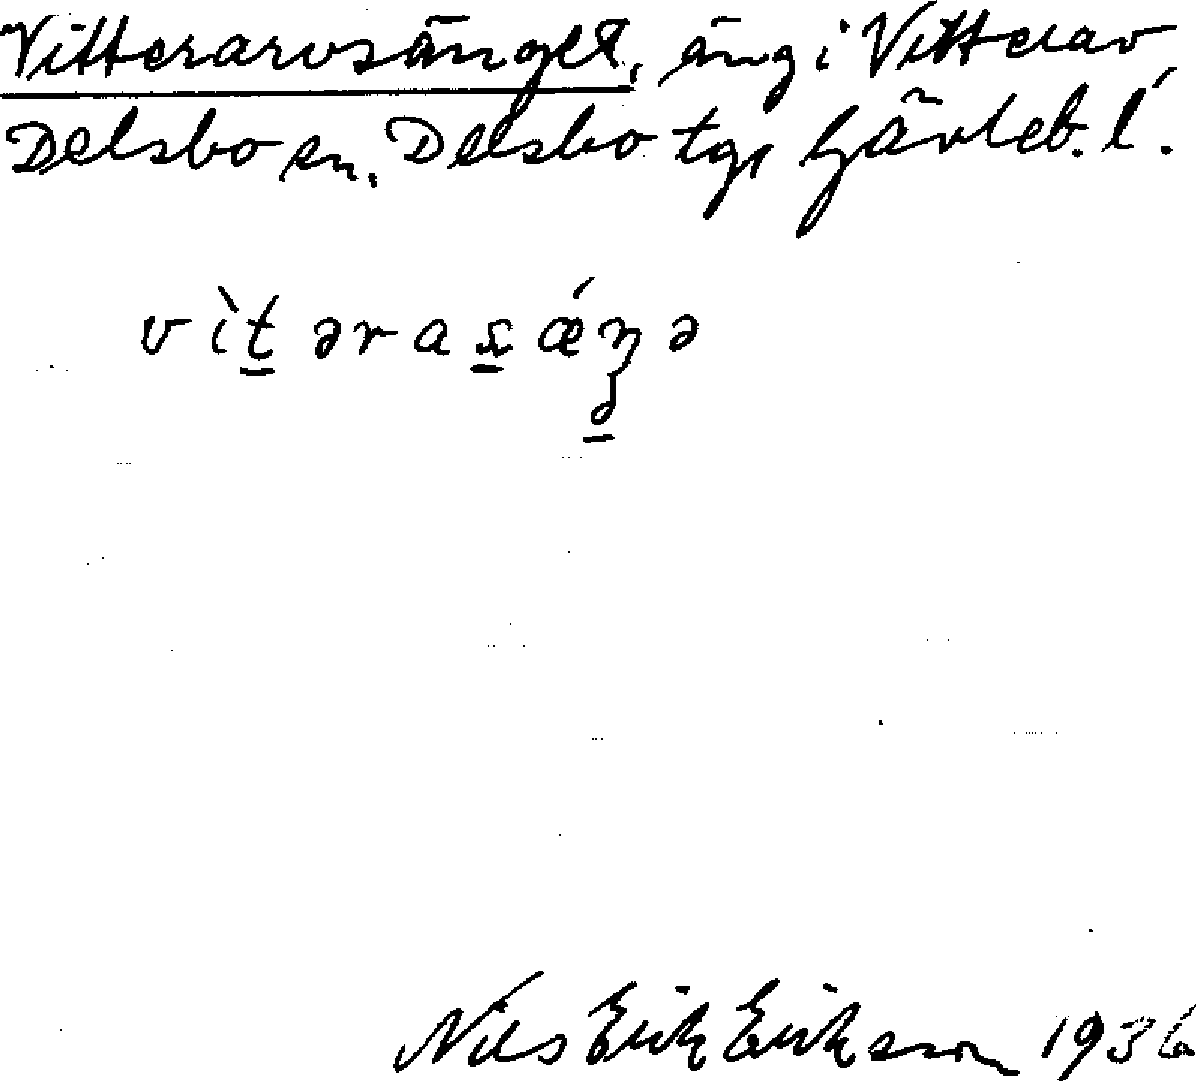 Vitterarvsänget, äng i Vitterav
Delsbo sn. Delsbo tgs Gävleb. l.
vìt̠əras̠ǽŋə
Nils Erik Eriksson 1936